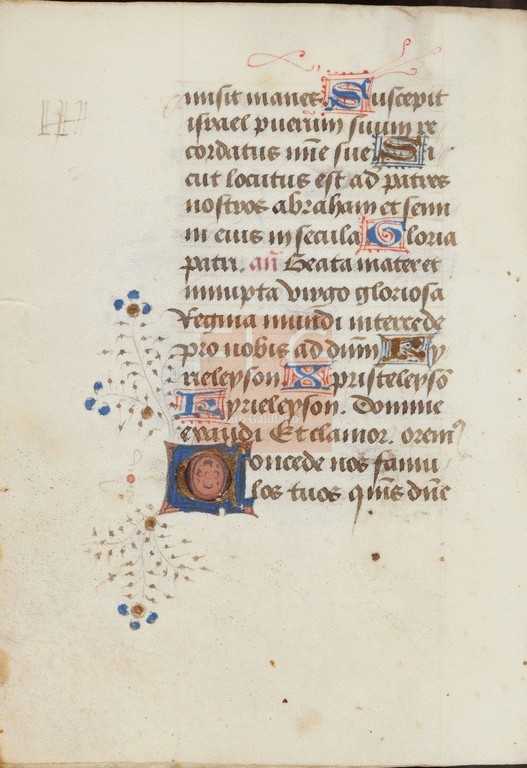 misit inanes Suscepit
israel puerum suum re
cordatus mie sue Si
cut locutus est ad patres
nostros abraham et semi
ni eius in secula Gloria
patri. añ Beata mater et
innupta virgo gloriosa
Regina mundi intercede
pro nobis ad dnm Ky
rieleyson. Xpristeleyso
Kyrieleyson. Domine
exaudi Et clamor. orem
Concede nos famu
los tuos qms dne